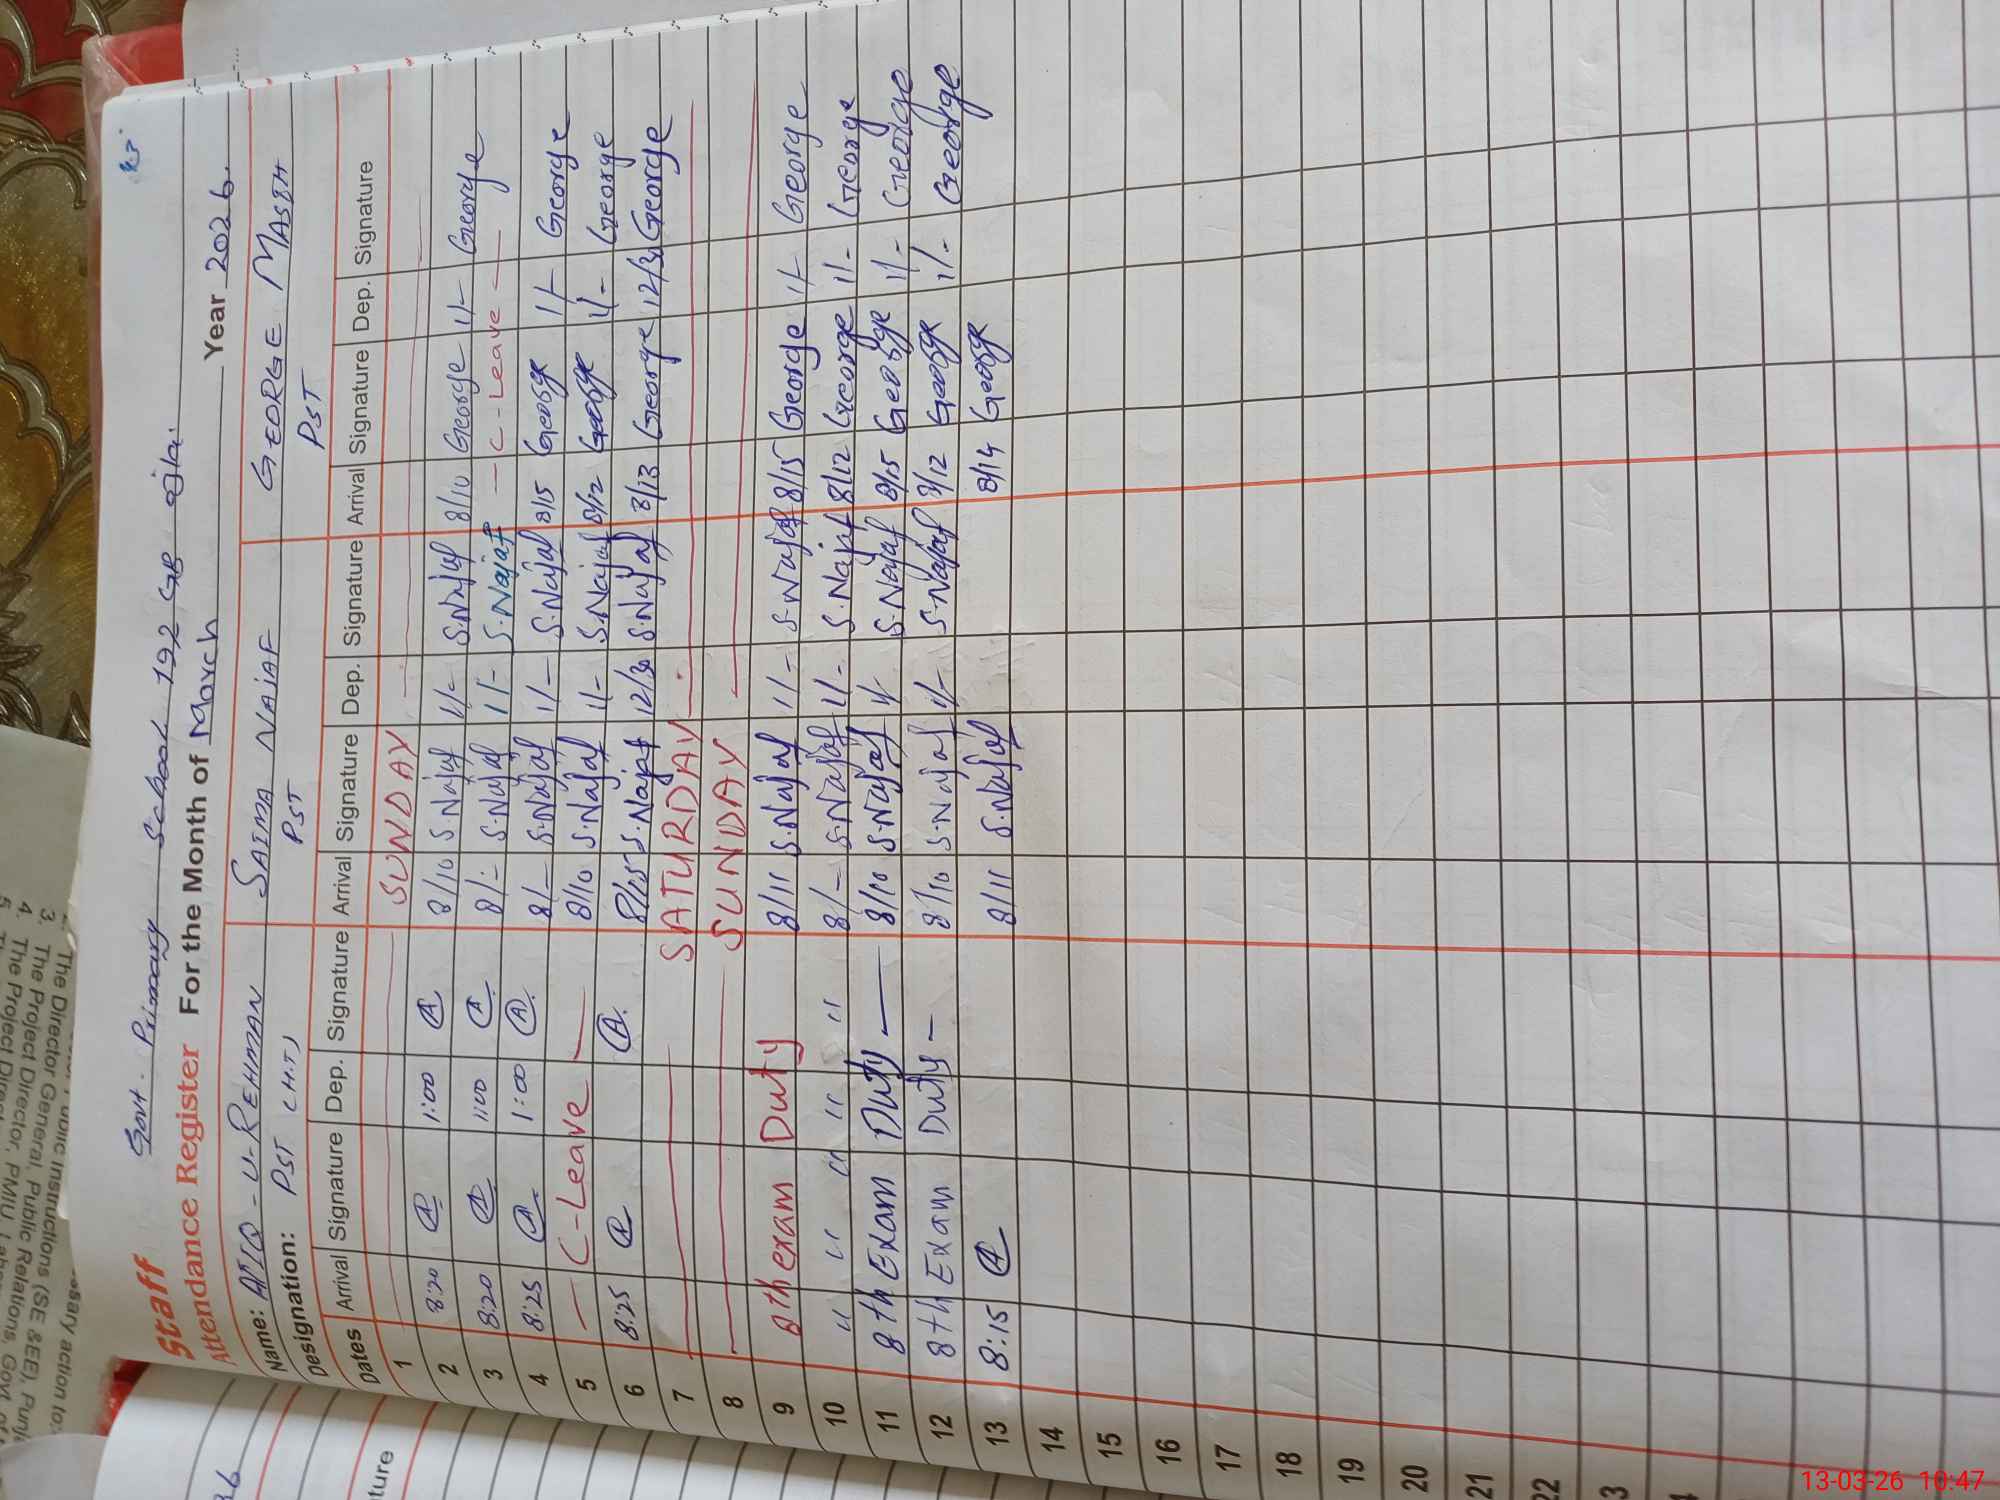 Govt. Primary School 192 GB ojla.
Staff
Attendance Register For the Month of March Year 2026.
Name: ATIQ-U-REHMAN SAIMA NAJAF GEORGE MASIH
Designation: PST (H.T) PST PST
Dates Arrival Signature Dep. Signature Arrival Signature Dep. Signature Arrival Signature Dep. Signature
1 SUNDAY
2 8:20 A 1:00 A 8/10 S.Najaf 1/- S.Najaf 8/10 George 1/- George
3 8:20 A 1:00 A 8/- S.Najaf 1/- S.Najaf — C-Leave —
4 8:25 A 1:00 A 8/- S.Najaf 1/- S.Najaf 8/15 George 1/- George
5 — C-Leave — 8/10 S.Najaf 1/- S.Najaf 8/12 George 1/- George
6 8:25 A A 8/15 S.Najaf 12/30 S.Najaf 8/13 George 12/30 George
7 SATURDAY
8 SUNDAY
9 8th exam Duty 8/11 S.Najaf 1/- S.Najaf 8/15 George 1/- George
10 " " " " " 8/- S.Najaf 1/- S.Najaf 8/12 George 1/- George
11 8th Exam Duty — 8/10 S.Najaf 1/- S.Najaf 8/15 George 1/- George
12 8th Exam Duty — 8/10 S.Najaf 1/- S.Najaf 8/12 George 1/- George
13 8:15 A 8/11 S.Najaf 8/14 George
14
15
16
17
18
19
20
21
22
3
4
The Director Public Instructions (SE & EE), Punj
3. The Project Director General, Public Relations, Gov
4. The Project Director, PMIU,
5.
ssary action to:
36
ture
13-03-26 10:47